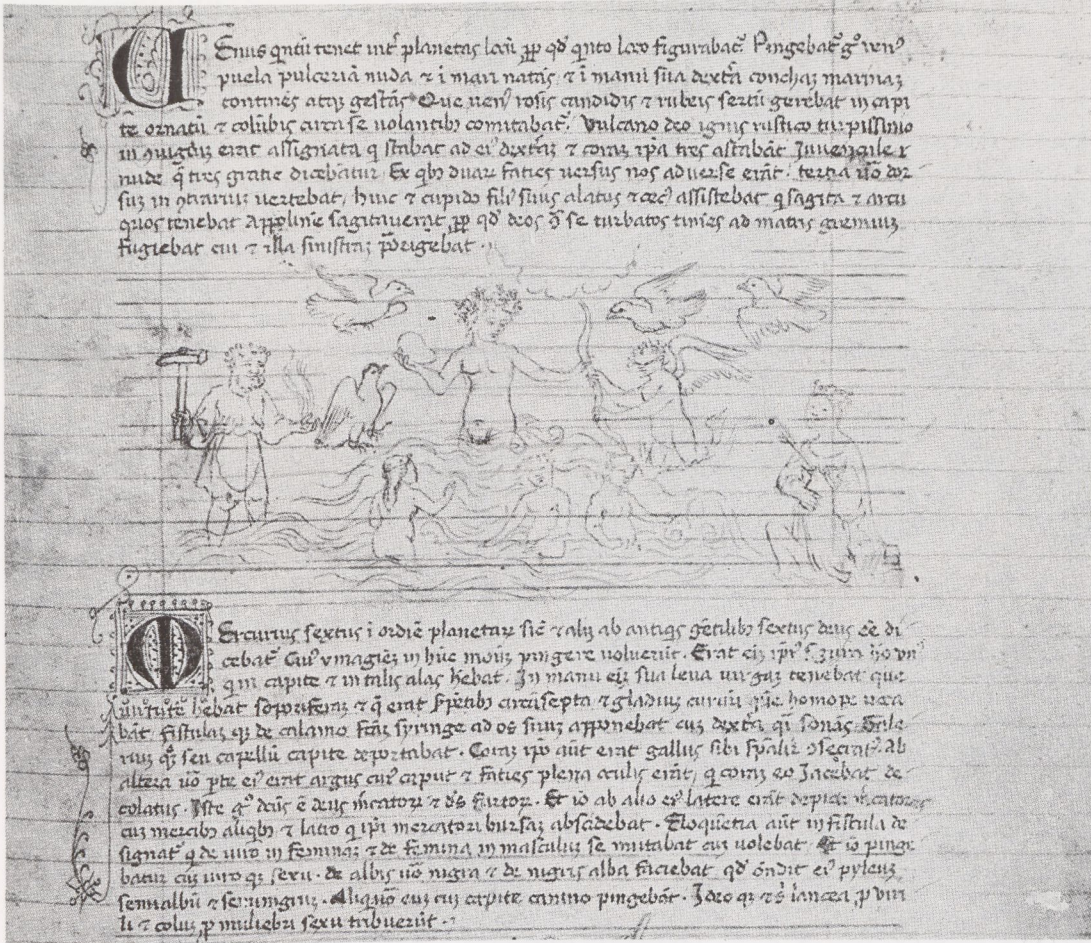 Venus qntū tenet int̄ planetas locū ꝓp qd̄ qinto loco figurabat᷑. Pingebat᷑ gͦ venꝰ
puela pulceriā nuda ⁊ ī mari natās ⁊ ī manu sua dextra conchaꝫ marinaꝫ
continēs atqꝫ gestās Que venꝰ rosis candidis ⁊ rubeis sertū gerebat in capi
te ornatū ⁊ colūbis circa se volantibꝫ comitabat᷑. Vulcano deo ignis rustico turpissimo
in ꝯiugiuꝫ erat assignata q stabat ad eiꝰ dextraꝫ ⁊ coraꝫ ip̄a tres astabāt Juvencule
nude q̄ tres gratie dicebātur Ex qbꝫ duaꝝ facies versus nos adverse erāt. tertia vͦo dor
suꝫ in ꝯtrariuꝫ vertebat, huic ⁊ cupido filiꝰ suus alatus ⁊ cecꝰ assistebat q sagita ⁊ arcu
quos tenebat Appoline sagitaverat ꝓp qd̄ deos ꝯ̄ se turbatos timēs ad matris gremiuꝫ
fugiebat cui ⁊ illa sinistraꝫ porigebat.
Mercurius sextus ī ordiē planetaꝝ sic̄ ⁊ aliꝫ ab antiqs gētilibꝫ sextus deus eē di
cebat᷑ Cuiꝰ ymagieꝫ in hūc moduꝫ pingere voluerūt. Erat
q in capite ⁊ in talis alas h̄ebat. In manu eiꝫ sua leva virgaꝫ tenebat que
virtutē h̄ebat soporiferaꝫ ⁊ q̄ erat s̄pētibꝫ circūsepta ⁊ gladiuꝫ curvū quē
bat. fistulaꝫ qꝫ de calamo fctaꝫ syringe ad os suuꝫ apponebat cuꝫ dextra qi sonās. Gale
ruꝫ qꝫ seu capellū capite deportabat. Coraꝫ ip̄o aūt erat gallus sibi sp̄alit᷑ ꝯsecratꝰ. Ab
altera vͦo pte eiꝰ erat argus cuiꝰ caput ⁊ facies plena oculis erāt, q coraꝫ eo Jacebat de
colatus. Iste gͦ deus ē deus m̄catoꝝ ⁊ dꝰs furtoꝝ. Et iō ab alio eiꝰ latere erāt depicti m̄catores
cuꝫ mercibꝫ aliqbꝫ ⁊ latro q ip̄i mercatori bursaꝫ abscidebat. Eloquētia aūt in fistula de
signat᷑ q de viro in feminaꝫ ⁊ de femina in masculuꝫ se mutabat cuꝫ volebat Et iō pinge
batur cuꝫ utro qꝫ sexu. de albis vͦo nigra ⁊ de nigris alba faciebat, qd̄ ōndit eiꝰ pyleus
semialbꝰ ⁊ seminigrꝰ. Aliquādo euꝫ cuꝫ capite canino pingebāt. Ideo qꝫ ⁊ lancea ꝓ viri
li ⁊ colus ꝓ muliebri sexu tribuerūt.